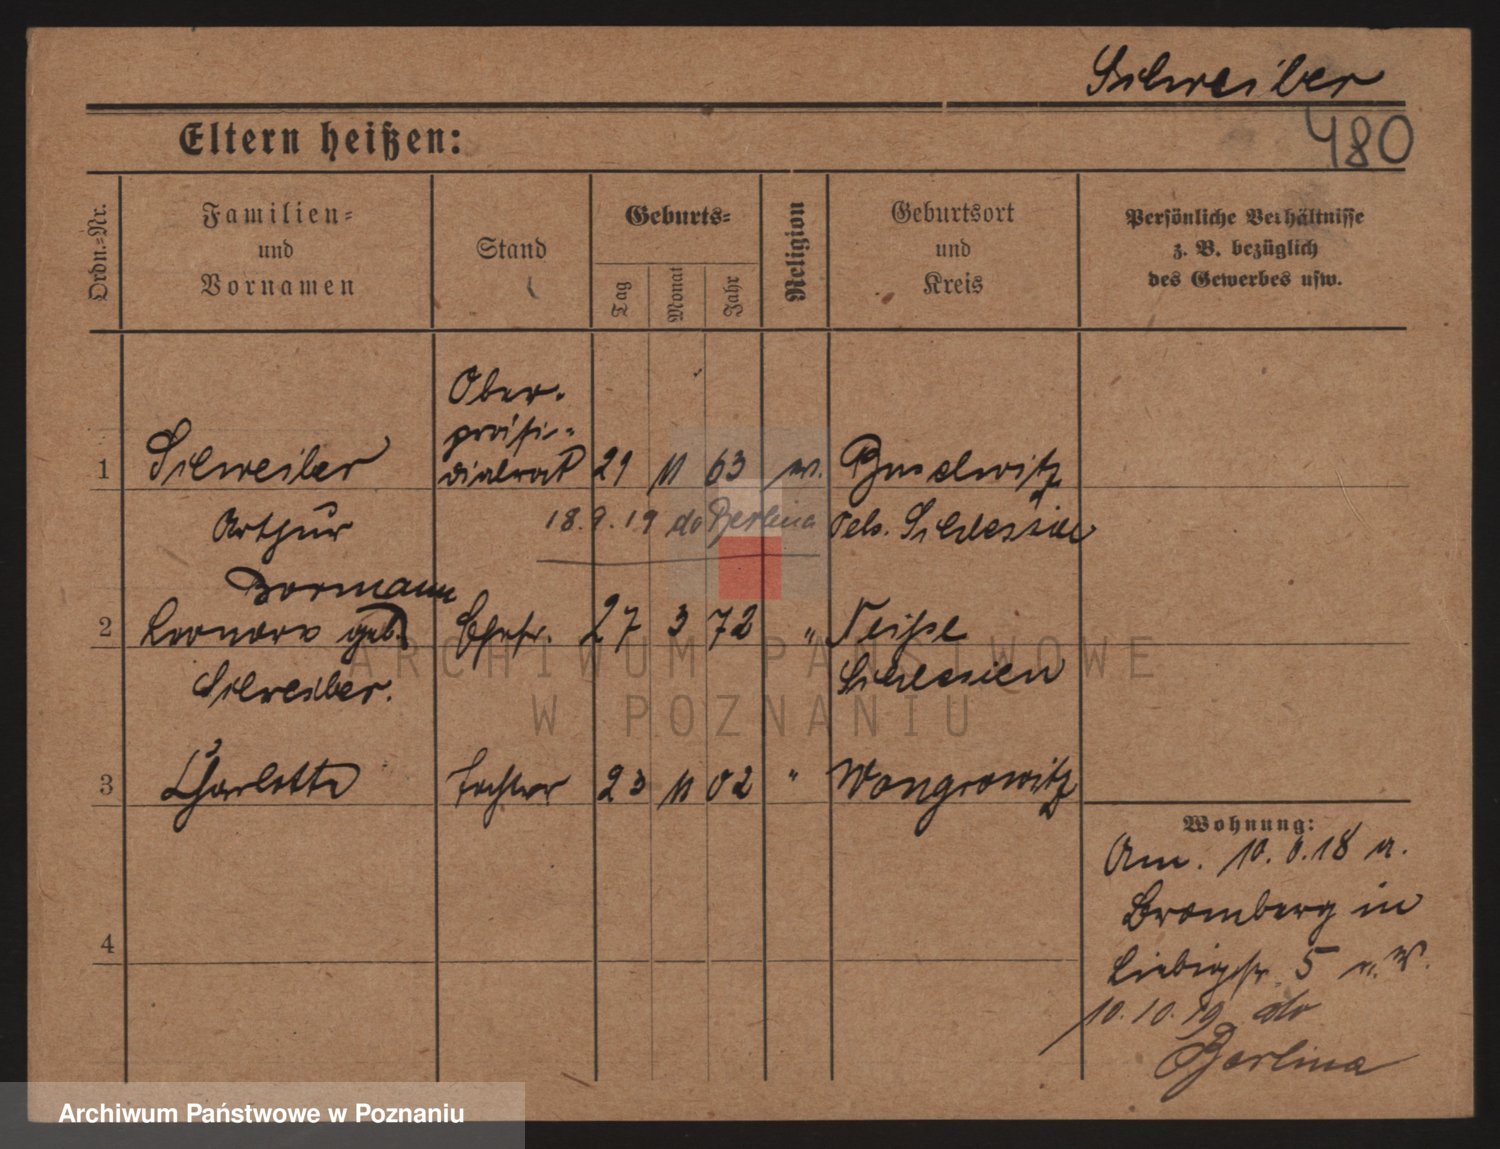 Schreiber
480
Eltern heißen:
Ordn.=Nr.
Familien=
und
Vornamen
Stand
Geburts=
Tag
Monat
Jahr
Religion
Geburtsort
und
Kreis
Persönliche Verhältnisse
z. B. bezüglich
des Gewerbes usw.
Ober-
präsi-
1 Schreiber dialrat 29 11 63 ev. Buschwitz
Arthur 18.9.19 do Berlina Schlesien
Bormann
2 geb. Ehefr. 27 3 72 " Neiße
Schreiber. Schlesien
3 Charlotte Tochter 23 11 02 " Wongrowitz
Wohnung:
Am. 10. .18 a.
Bromberg in
4
Liebigstr. 5
10.10.19 do
Berlina
ARCHIWUM PAŃSTWOWE
W POZNANIU
Archiwum Państwowe w Poznaniu